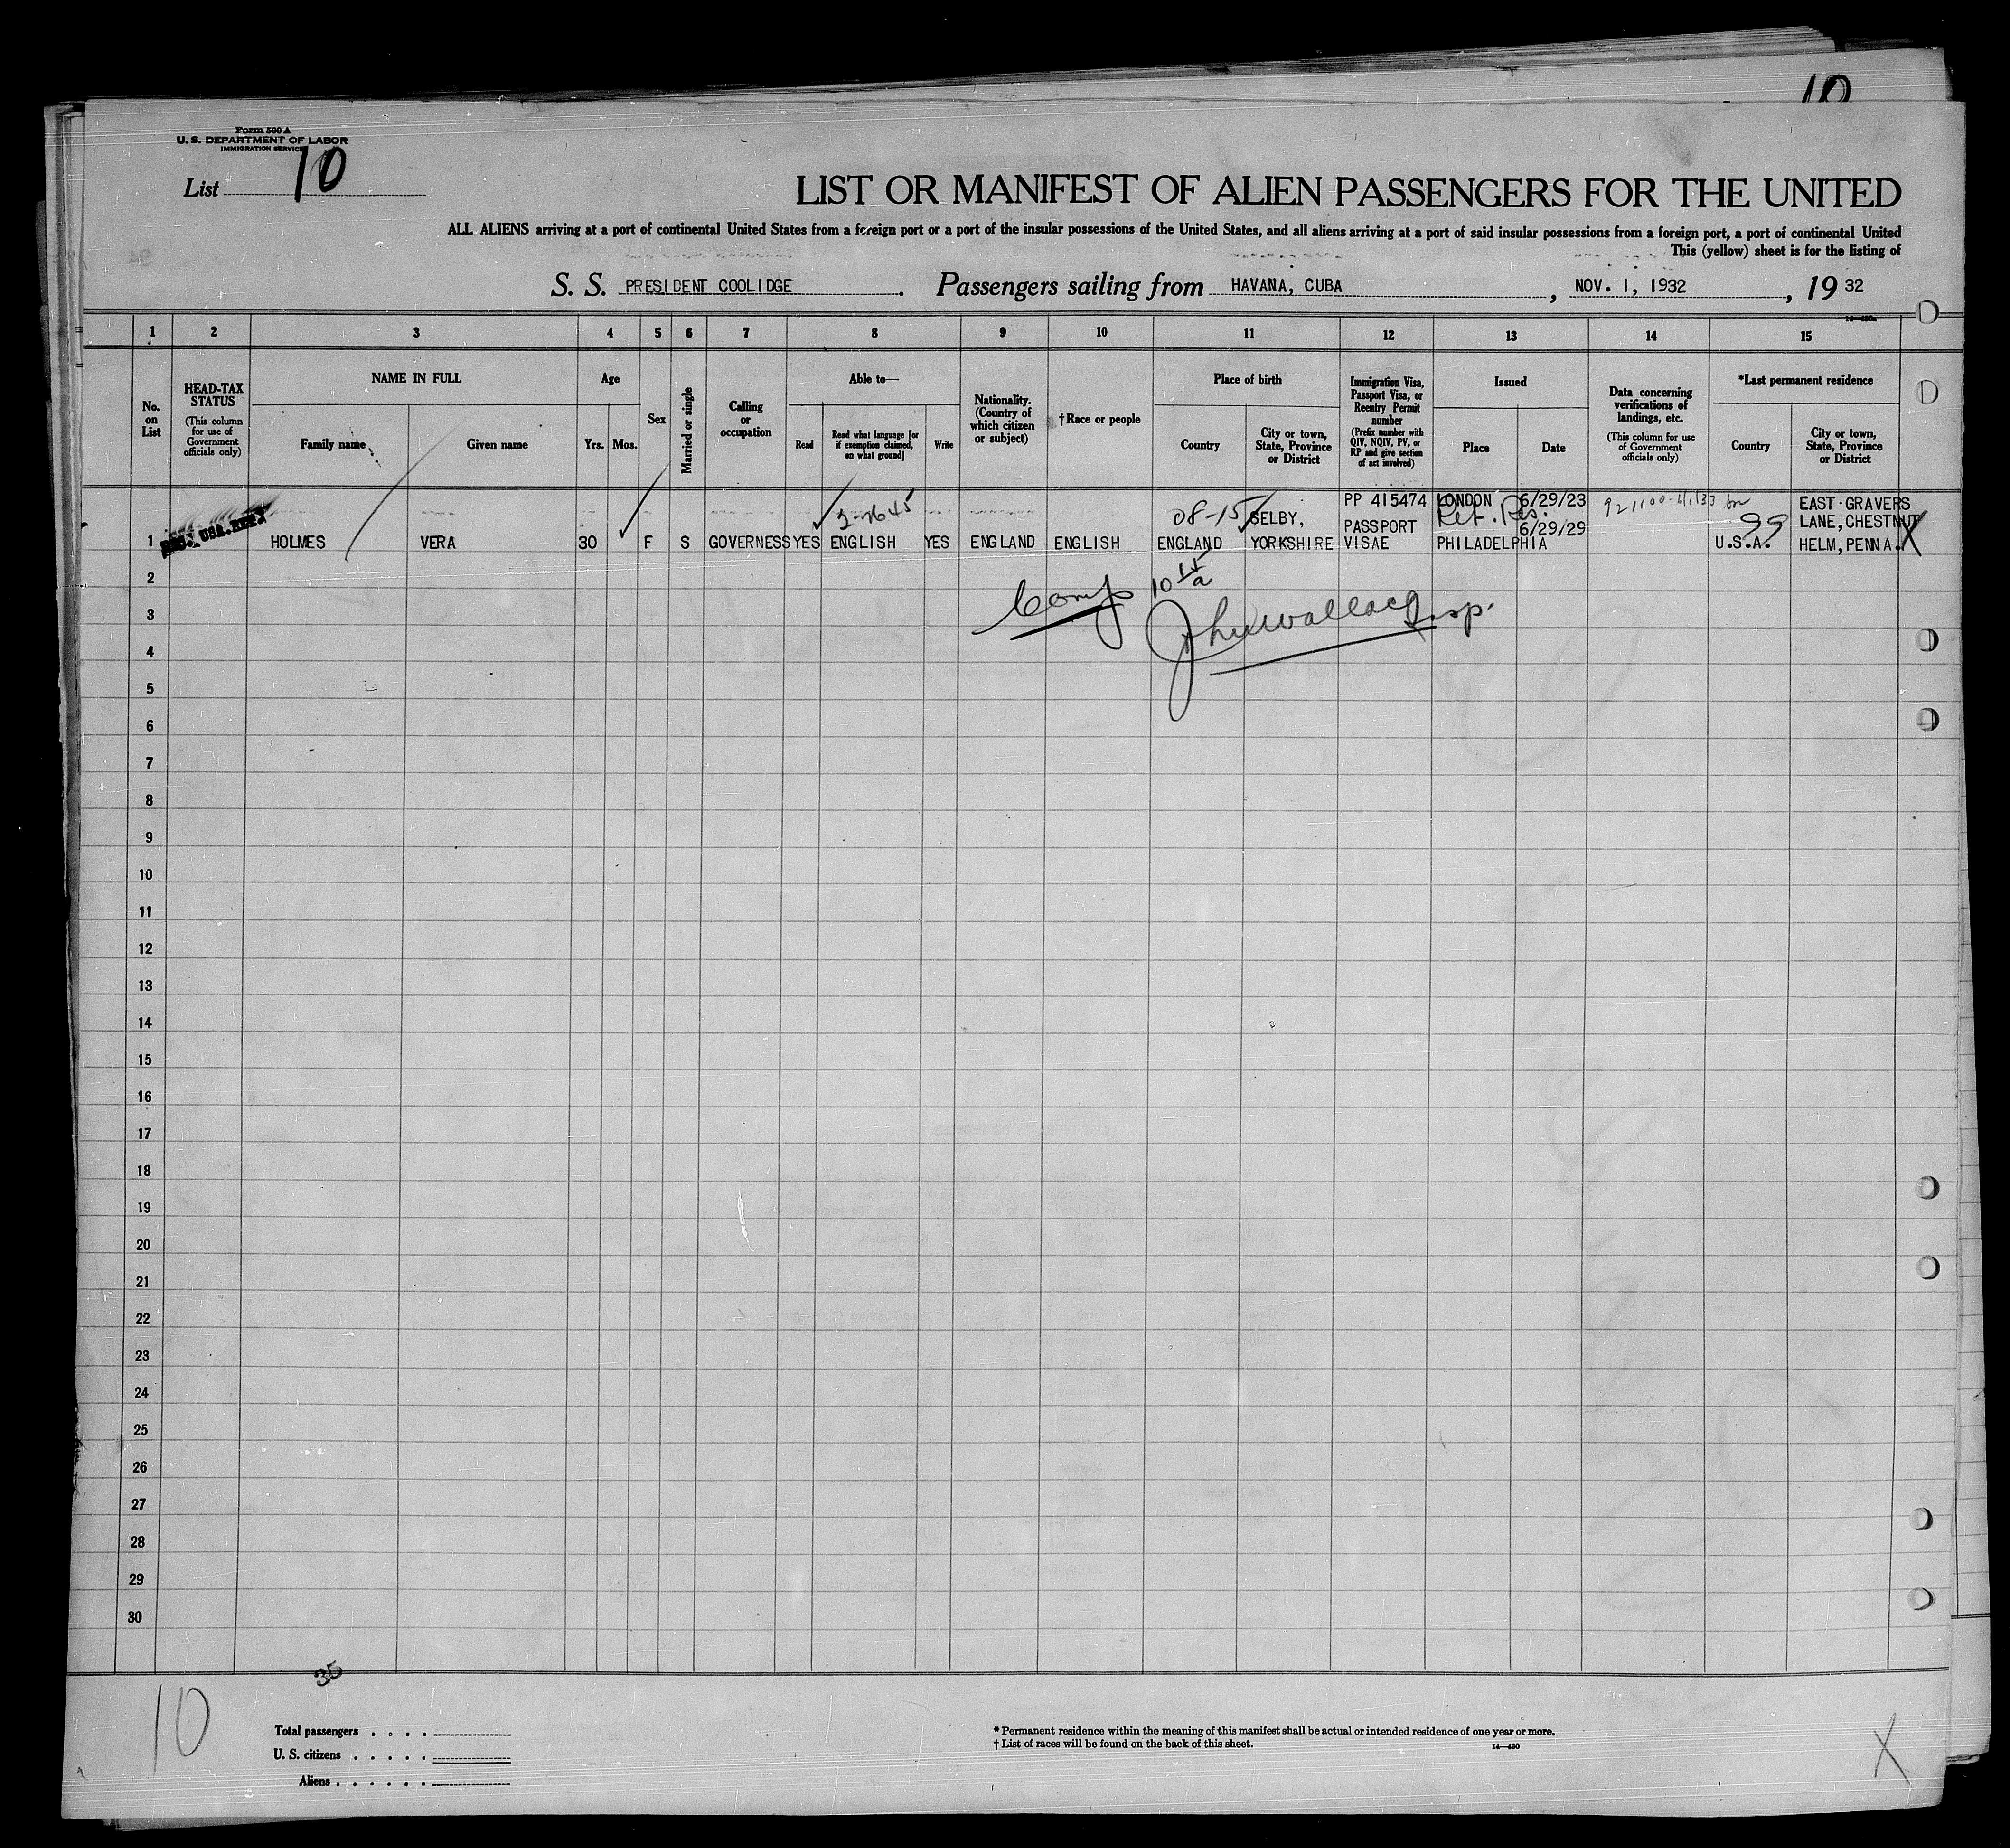 10
Form 500 A
U. S. DEPARTMENT OF LABOR
IMMIGRATION SERVICE
List 10
LIST OR MANIFEST OF ALIEN PASSENGERS FOR THE UNITED
ALL ALIENS arriving at a port of continental United States from a foreign port or a port of the insular possessions of the United States, and all aliens arriving at a port of said insular possessions from a foreign port, a port of continental United
This (yellow) sheet is for the listing of
S. S. PRESIDENT COOLIDGE . Passengers sailing from HAVANA, CUBA , NOV. 1, 1932 , 19 32
14—430a
1 2 3 4 5 6 7 8 9 10 11 12 13 14 15
No. on List
HEAD-TAX STATUS
(This column for use of Government officials only)
NAME IN FULL
Family name
Given name
Age
Yrs.
Mos.
Sex
Married or single
Calling or occupation
Able to—
Read
Read what language [or if exemption claimed, on what ground]
Write
Nationality. (Country of which citizen or subject)
† Race or people
Place of birth
Country
City or town, State, Province or District
Immigration Visa, Passport Visa, or Reentry Permit number
(Prefix number with QIV, NQIV, PV, or RP and give section of act involved)
Issued
Place
Date
Data concerning verifications of landings, etc.
(This column for use of Government officials only)
*Last permanent residence
Country
City or town, State, Province or District
PP 415474 LONDON 6/29/23 EAST GRAVERS
08-15 SELBY, PASSPORT Ret. Res. 6/29/29 99 LANE, CHESTNUT
1 HOLMES VERA 30 F S GOVERNESS YES ENGLISH YES ENGLAND ENGLISH ENGLAND YORKSHIRE VISAE PHILADELPHIA U.S.A. HELM, PENNA. X
2
3
4
5
6
7
8
9
10
11
12
13
14
15
16
17
18
19
20
21
22
23
24
25
26
27
28
29
30
35
10
Total passengers . . . .
U. S. citizens . . . . .
Aliens . . . . . .
* Permanent residence within the meaning of this manifest shall be actual or intended residence of one year or more.
† List of races will be found on the back of this sheet.
14—430
X